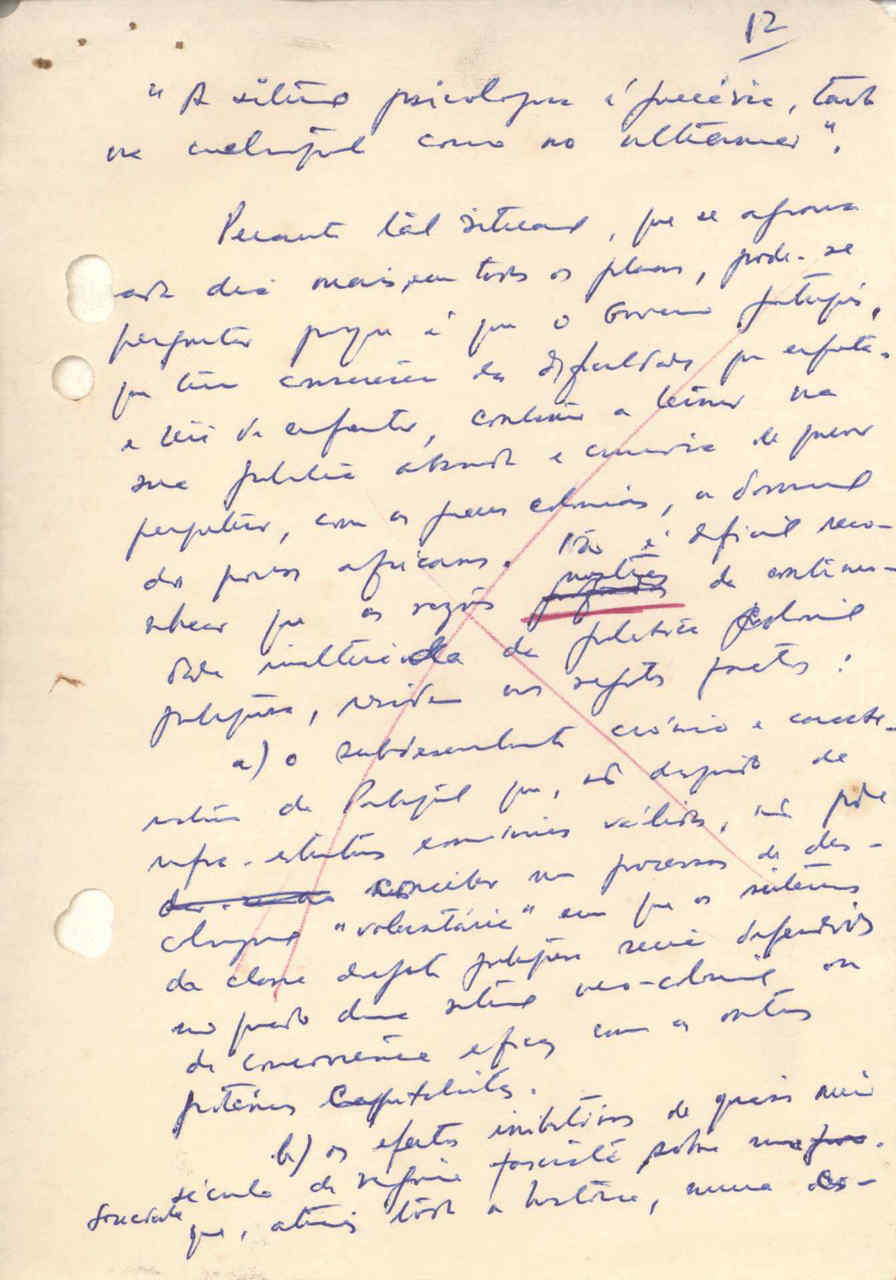 12
"A situação psicológica é precária, tanto
na metrópole como no ultramar".
Perante tal situação, que se agrava
cada dia mais, em todos os planos, pode-se
perguntar porque é que o Governo português,
que tem consciência das dificuldades que enfrenta
e terá de enfrentar, continua a teimar na
sua política absurda e criminosa de querer
perpetuar, com as guerras coloniais, a dominação
dos povos africanos. Não é difícil reco-
nhecer que as razões de continui-
dade inalterada da política colonial
portuguesa, residem nos seguintes factos:
a) o subdesenvolvimento crónico e caracte-
rístico de Portugal que, não dispondo de
infra-estruturas económicas válidas, não pode
conceber um processo de des-
colonização "voluntária" em que os interesses
da classe dirigente portuguesa seriam defendidos
no quadro duma situação neo-colonial ou
de concorrência eficaz com as outras
potências capitalistas.
b) os efeitos inibitórios de quase meio
século de regime fascista sobre uma
sociedade que, através toda a história, nunca co-